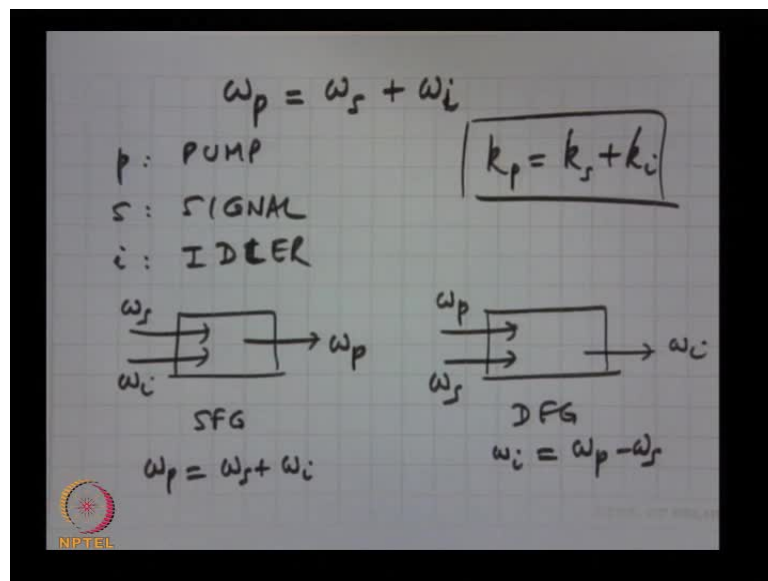 ωp = ωs + ωi
p: PUMP
kp = ks + ki
s: SIGNAL
i: IDLER
ωs
ωi
ωp
SFG
ωp = ωs + ωi
ωp
ωs
ωi
DFG
ωi = ωp - ωs
NPTEL